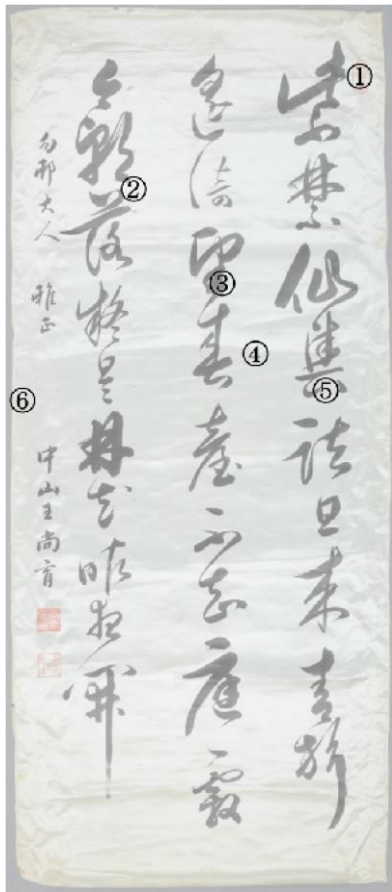 ①
紫禁仙輿詰旦来青旂
⑤
④
遙倚望春臺不知庭霰
③
②
今朝落疑是林花昨夜開
大人 雅正 中山王尚育
⑥